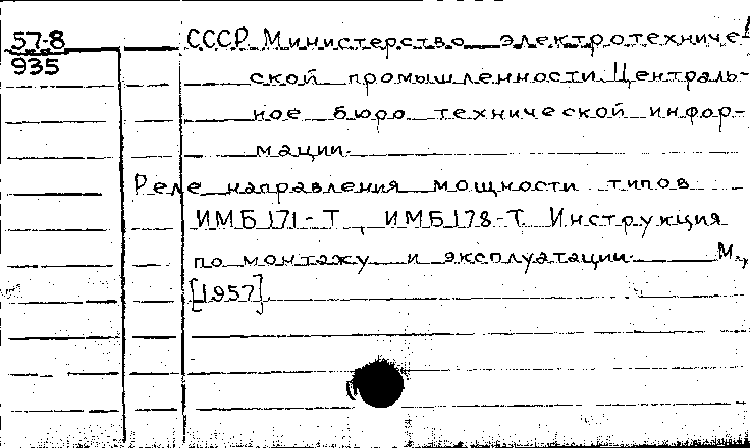 57-8
935
СССР. Министерство электротехниче-
ской промышленности. Централь-
ное бюро технической инфор-
мации.
Реле направления мощности типов
ИМБ 171-Т, ИМБ 178-Т. Инструкция
по монтажу и эксплуатации. М.,
[1957].